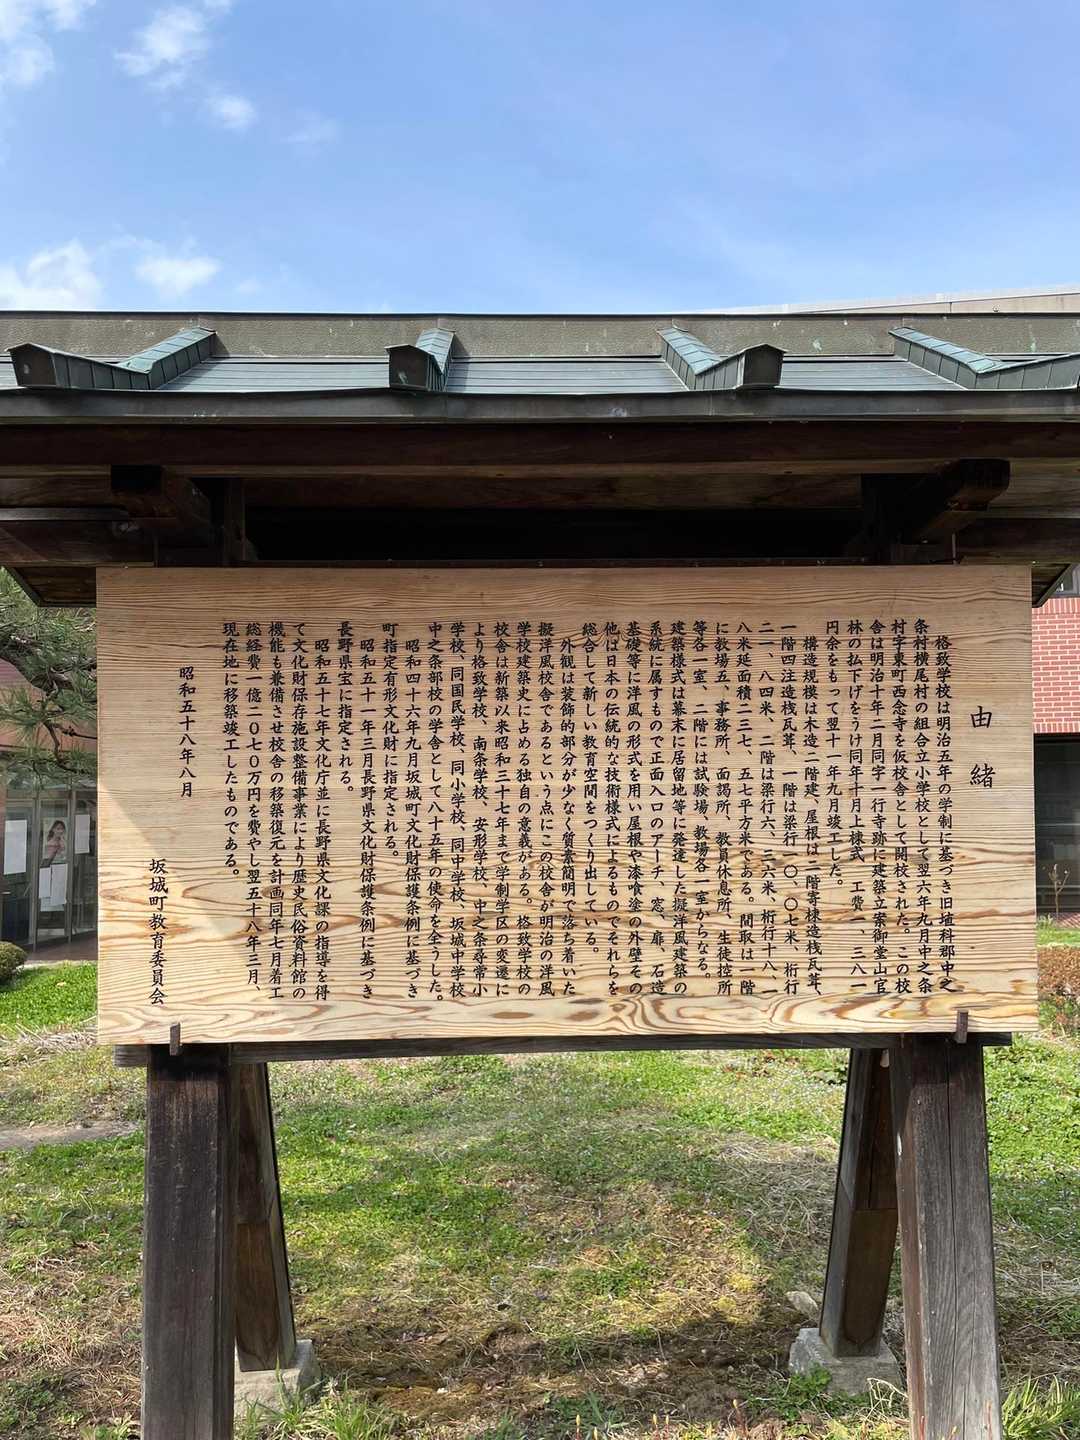 由緒
格致学校は明治五年の学制に基づき旧埴科郡中之
条村横尾村の組合立小学校として翌六年九月中之条
村字東町西念寺を仮校舎として開校された。この校
舎は明治十年二月同字一行寺跡に建築立案御堂山官
林の払下げをうけ同年十月上棟式、工費一、三八一
円余をもって翌十一年九月竣工した。
構造規模は木造二階建、屋根は二階寄棟造桟瓦葺、
一階四注造桟瓦葺、一階は梁行一〇、〇七米、桁行
二一、八四米、二階は梁行六、三六米、桁行十八、一
八米延面積二三七、五七平方米である。間取は一階
に教場五、事務所、面謁所、教員休息所、生徒控所
等各一室、二階には試験場、教場各一室からなる。
建築様式は幕末に居留地等に発達した擬洋風建築の
系統に属すもので正面入口のアーチ、窓、扉、石造
基礎等に洋風の形式を用い屋根や漆喰塗の外壁その
他は日本の伝統的な技術様式によるものでそれらを
総合して新しい教育空間をつくり出している。
外観は装飾的部分が少なく質素簡明で落ち着いた
擬洋風校舎であるという点にこの校舎が明治の洋風
学校建築史に占める独自の意義がある。格致学校の
校舎は新築以来昭和三十七年まで学制学区の変遷に
より格致学校、南条学校、安形学校、中之条尋常小
学校、同国民学校、同小学校、同中学校、坂城中学校
中之条部校の学舎として八十五年の使命を全うした。
昭和四十六年九月坂城町文化財保護条例に基づき
町指定有形文化財に指定される。
昭和五十一年三月長野県文化財保護条例に基づき
長野県宝に指定される。
昭和五十七年文化庁並に長野県文化課の指導を得
て文化財保存施設整備事業により歴史民俗資料館の
機能も兼備させ校舎の移築復元を計画同年七月着工
総経費一億二〇七〇万円を費やし翌五十八年三月、
現在地に移築竣工したものである。
昭和五十八年八月
坂城町教育委員会